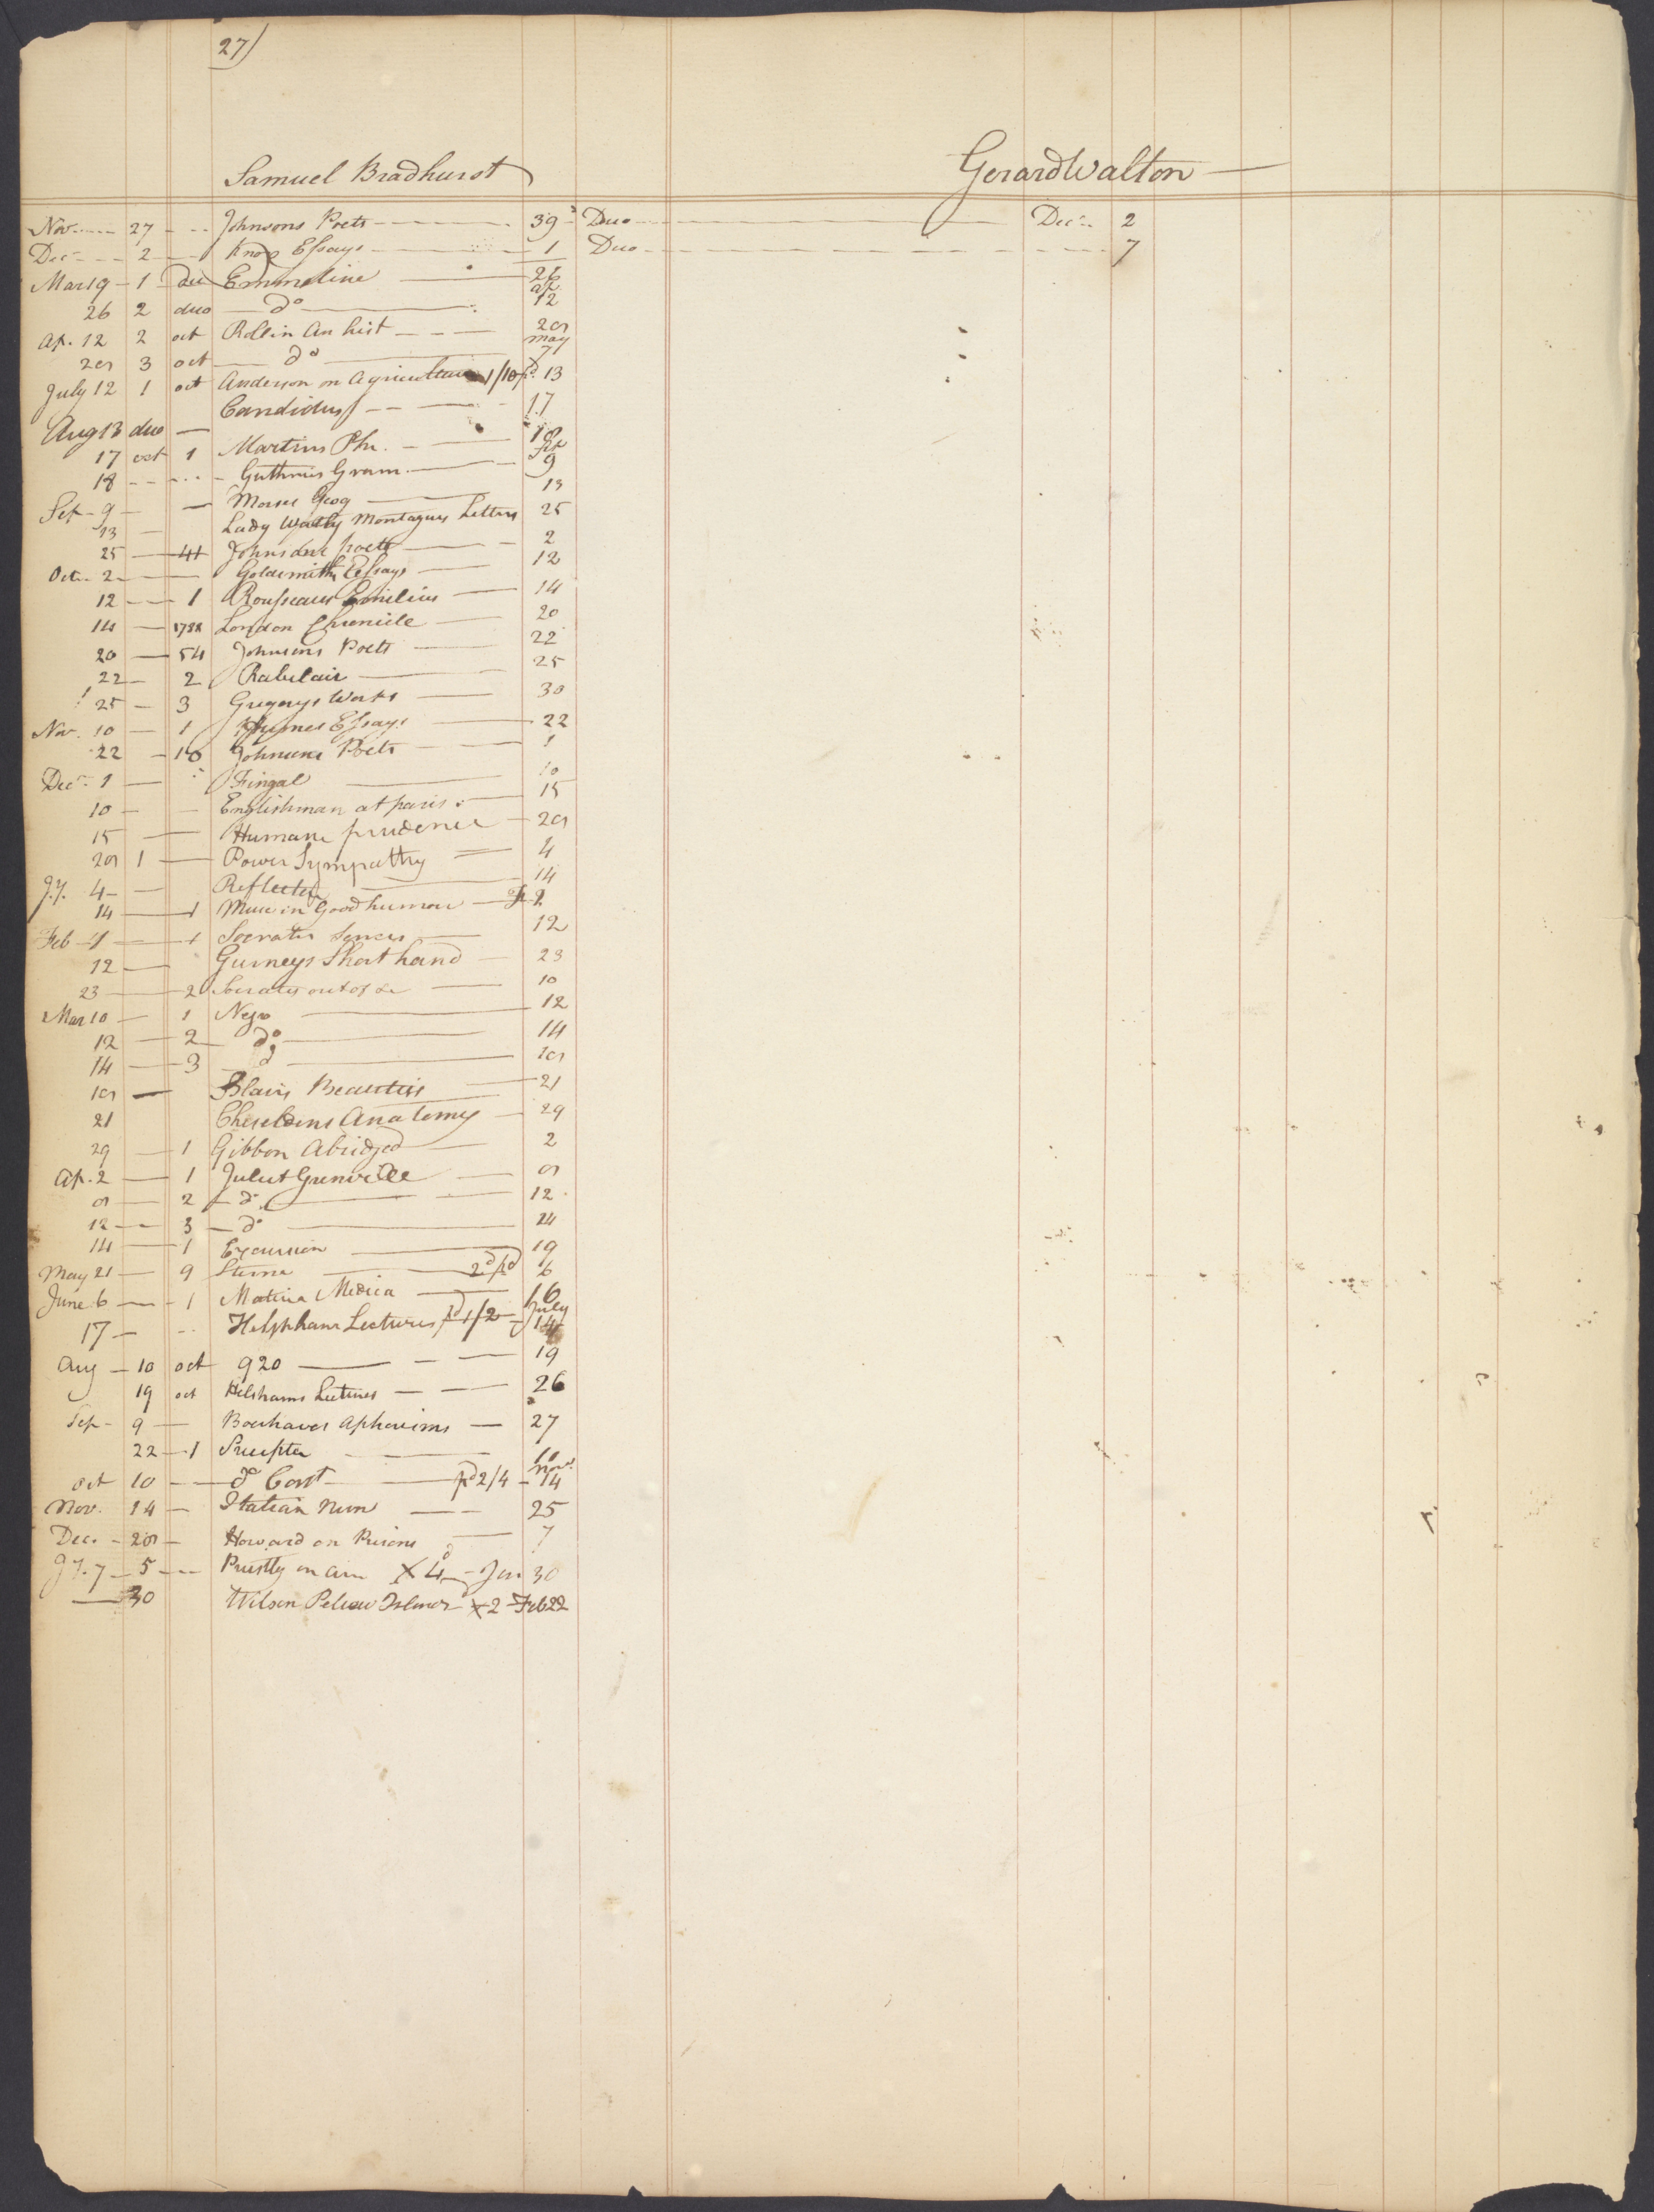 27)
Samuel Bradhurst Gerard Walton
Nov 27 Johnsons Poets 39 Duo Decr 2
Dec 2 Knox Essays 1 Duo 7
Mar 19 1 duo Emmeline 26
26 2 duo do ap. 12
Ap. 12 2 oct Rollin An hist 29
29 3 oct do may 7
July 12 1 oct Anderson on Agriculture 1/10 pd. 13
Candidus 17
Aug 13 duo
17 oct 1 Martins Phi. 18
18 Guthries Gram. Sep 9
Sep 9 Morses Geog 13
13 Lady Montagus Letters 25
25 41 Johnsons poets 2
Oct 2 Goldsmiths Essays 12
12 1 Rousseaus Emilius 14
14 1788 London Chronicle 20
20 54 Johnsons Poets 22
22 2 Rabelais 25
25 3 Gregorys Works 30
Nov. 10 1 Humes Essays 22
22 18 Johnsons Poets 1
Decr. 1 Fingal 10
10 Englishman at paris 15
15 Human prudence 29
29 1 Power Sympathy 4
Jy. 4 14
14 1 Muse in Good humour F 2
Feb 1 1 Socrates 12
12 Gurneys Shorthand 23
23 2 Socrates out of 10
Mar 10 1 Negro 12
12 2 do 14
14 3 d 19
19 Blairs Beauties 21
21 Cheseldens Anatomy 29
29 1 Gibbon Abridged 2
Ap. 2 1 Juliet Grenville 9
9 2 do 12
12 3 do 14
14 1 Excursion 19
May 21 9 Sterne 2d pd 6
June 6 1 Materia Medica 16
17 Helshham Lectures pd 1/2 July 14
Aug 10 oct 920 19
19 oct Helshams Lectures 26
Sep 9 Boerhaves Aphorisms 27
22 1 Precepter 10
Oct 10 do Cont pd 2/4 Novr 14
Nov. 14 Italian Nun 25
Dec. 29 Howard on Prisons 7
Jy. 7 5 Priestly on air X 4d Jan 30
30 Wilson Pelew Islands X 2 Feb 22